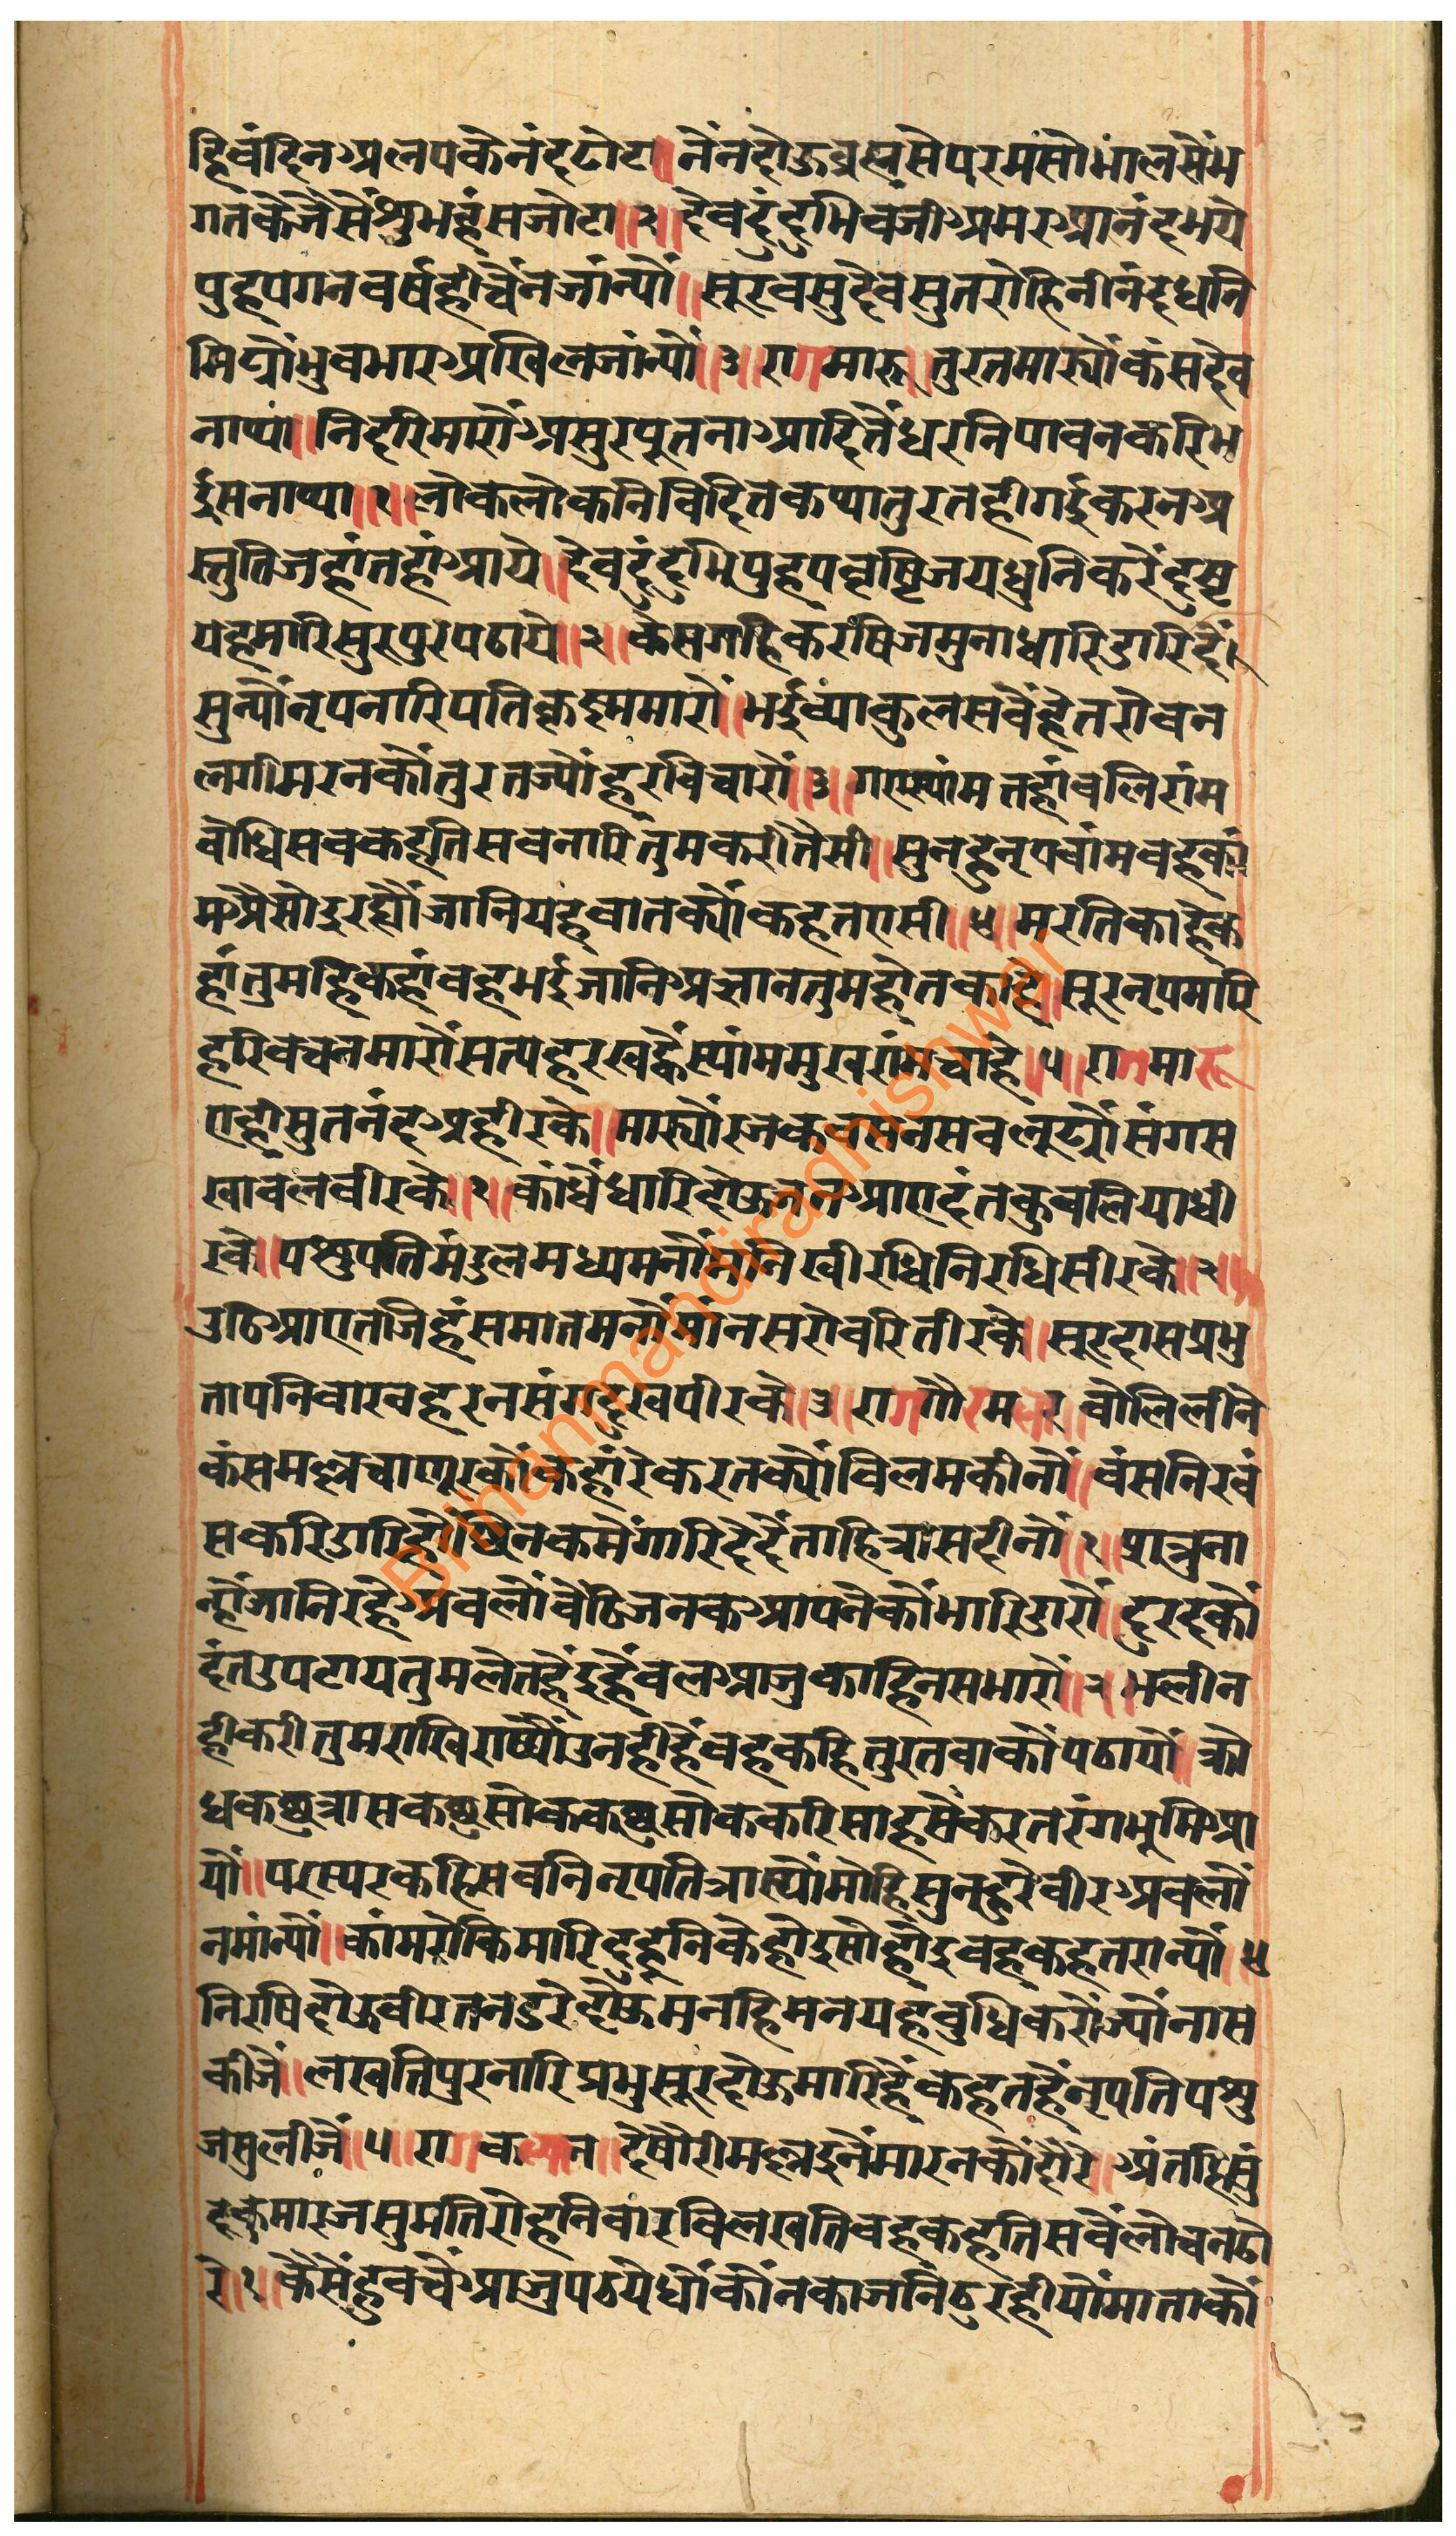 हिवंदिन अलपकेनंदढोटा ॥ नैंनदोऊब्रह्मसेपरमसोभालसैंभ
गतकेजैसैंशुभहंसजोटा ॥२॥ देवदुंदुभिवजी अमर आनंदभये
पुहपगनवर्षहीचैंनजांन्यौं ॥ सूरवसुदेवसुतरोहिनीनंदधनि
मिट्यौंभुवभार अखिलजांन्यौं ॥३॥ रागमारू ॥ तुरतमार्यौकंसदेव
नाथा ॥ निदरिमारौं असुरपूतना आदितैंधरनिपावनकरिभ
ईसनाथा ॥१॥ लोकलोकनिविदितकथातुरतहीगईकरन अ
स्तुतिजहांतहां आये ॥ देवदुंदुभिपुहपवृष्टिजयधुनिकरेंदुष्ट
येहमारिसुरपुरपठाये ॥२॥ केसगहिकरषिजमुनाधारिडारिदैं
सुन्यौंनृपनारिपतिकृष्णमारौं ॥ भईव्याकुलसवैंहेतरोवन
लगीमरनकौंतुरतज्यौंहरविचारौं ॥३॥ गएस्यांमतहांवलिरांम
वोधिसवकहतिसवनारितुमकरीतैसी ॥ सुनहुनृपवांमवहकां
म अैसोइरह्यौंजानियहवातक्यौंकहतएसी ॥४॥ मरतिकाहेक
हांतुमहिकहांवहभईजानि अज्ञानतुमहोतकाहे ॥ सूरनृपमारि
हरिवचनमारौंसत्यहरखह्वैंस्यांममुखरांमचाहे ॥५॥ रागमारू
एहीसुतनंद अहीरके ॥ मार्यौंरजकवसनसवलूट्यौंसंगस
खावलवीरके ॥१॥ कांधैंधारिदोऊजन आएदंतकुवलियाधी
रके ॥ पशुपतिमंडलमध्यमनौंमनिखीरधिनिरधिसीरके ॥२॥
उठि आएतजिहंसमातमनौंमांनसरोवरितीरके ॥ सूरदासप्रभु
तापनिवारवहरनसंगदुखपीरके ॥३॥ रागगौरमलार वोलिलीने
कंसमल्लचाणूरकौंकहांरेकरतक्यौंविलमकीनौं ॥ वंसनिरवं
सकरिडारिहौंछिनकमेंगारिदैदैंताहित्रासदीनौं ॥१॥ शत्रुना
न्हौंजानिरहे अवलौंवैठिजनक आपनेकौंमारिडारौं ॥ दुरदकौं
दंतउपटायतुमलेतहैंदुहैंवल आजुकाहिनसभारौं ॥२॥ भलीन
हीकरीतुमराखिराष्यौंउनहीहैंवहकहितुरतवाकौंपठायौं ॥ क्रो
धकछुत्रासकछुसोककछुसोककरिसाहसैंकरतरंगभुमि आ
यौं ॥ परस्परकहिसवनिनृपतित्रास्यौंमोहिसुनहुरेवीर अवलौं
नमांन्यौं ॥ कांमरोकिमारिदुहूनिकेहोइसोहोइवहकहतरान्यौं ॥४
निरषिदोऊवीरतनडरेदोऊमनहिमनयहवुधिकरौंज्यौंनास
कीजै ॥ लखतिपुरनारिप्रभुसूरदोऊमारिहैंकहतहैंनृपतिपशु
जसुलीजैं ॥५॥ रागकल्यान ॥ देषौरीमल्लइनैंमारनकौंदौरे ॥ अंतहिसुं
दरकुमारजसुमतिरोहनिवारविलखतिवहकहतिसवैंलोचनढो
रे ॥१॥ कैसेंहुवचैं आजुपठयेधौंकौंनकाजनिठुरहीयौंमाताकौं